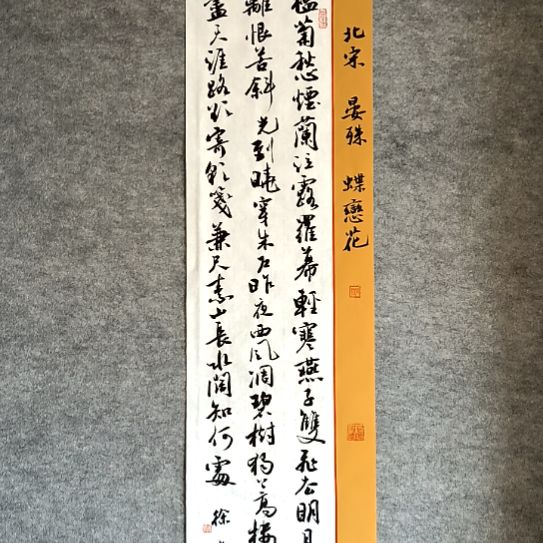 北宋 晏殊 蝶戀花
檻菊愁煙蘭泣露羅幕輕寒燕子雙飛去明月
離恨苦斜光到曉穿朱戶昨夜西風凋碧樹独上高樓
盡天涯路欲寄彩箋兼尺素山長水闊知何處
徐